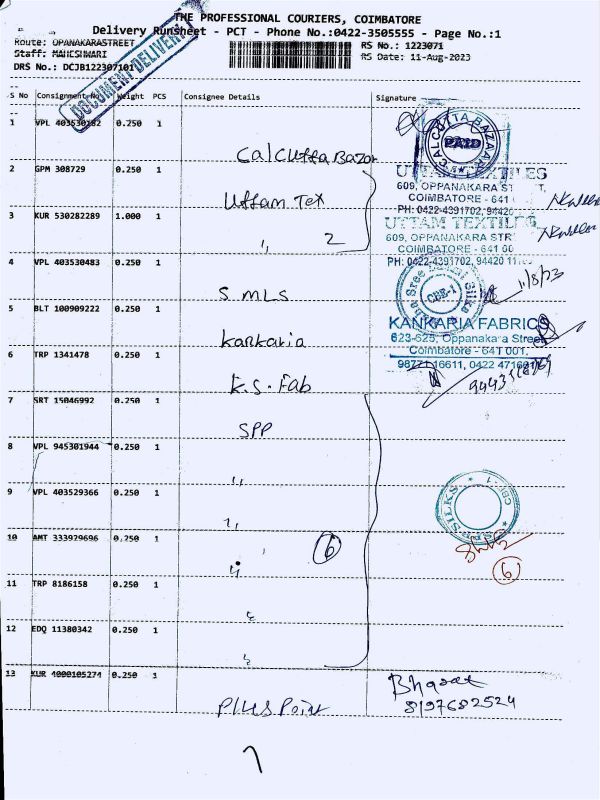 THE PROFESSIONAL COURIERS, COIMBATORE
Delivery Runsheet - PCT - Phone No.:0422-3505555 - Page No.:1
Route: OPANAKARASTREET
RS No.: 1223071
Staff: MAHESHWARI
RS Date: 11-Aug-2023
DRS No.: DCJB122307101
DOCUMENT DELIVERY
S No Consignment No Weight PCS Consignee Details Signature
1 VPL 403530182 0.250 1
Calcutta Bazar
CALCUTTA BAZAAR
PAID
2 GPM 308729 0.250 1
Uttam Tex
UTTAM TEXTILES
609, OPPANAKARA ST
COIMBATORE - 641
PH: 0422-4391702, 94420
3 KUR 530282289 1.000 1
" 2
UTTAM TEXTILES
609, OPPANAKARA STR
COIMBATORE - 641 00
PH: 0422-4391702, 94420
4 VPL 403530483 0.250 1
S MLS
CBE-1
11/8/23
5 BLT 100909222 0.250 1
kankaria
KANKARIA FABRICS
623-625, Oppanakara Street
Coimbatore - 641 001.
6 TRP 1341478 0.250 1
K.S. Fab
7 SRT 15046992 0.250 1
SPP
8 VPL 945301944 0.250 1
"
9 VPL 403529366 0.250 1
"
SILKS
CBE-1
10 AMT 333929696 0.250 1
" 6
6
11 TRP 8186158 0.250 1
"
12 EDQ 11380342 0.250 1
"
13 KUR 4000105274 0.250 1
Plus Point
Bharat
8197682524
7